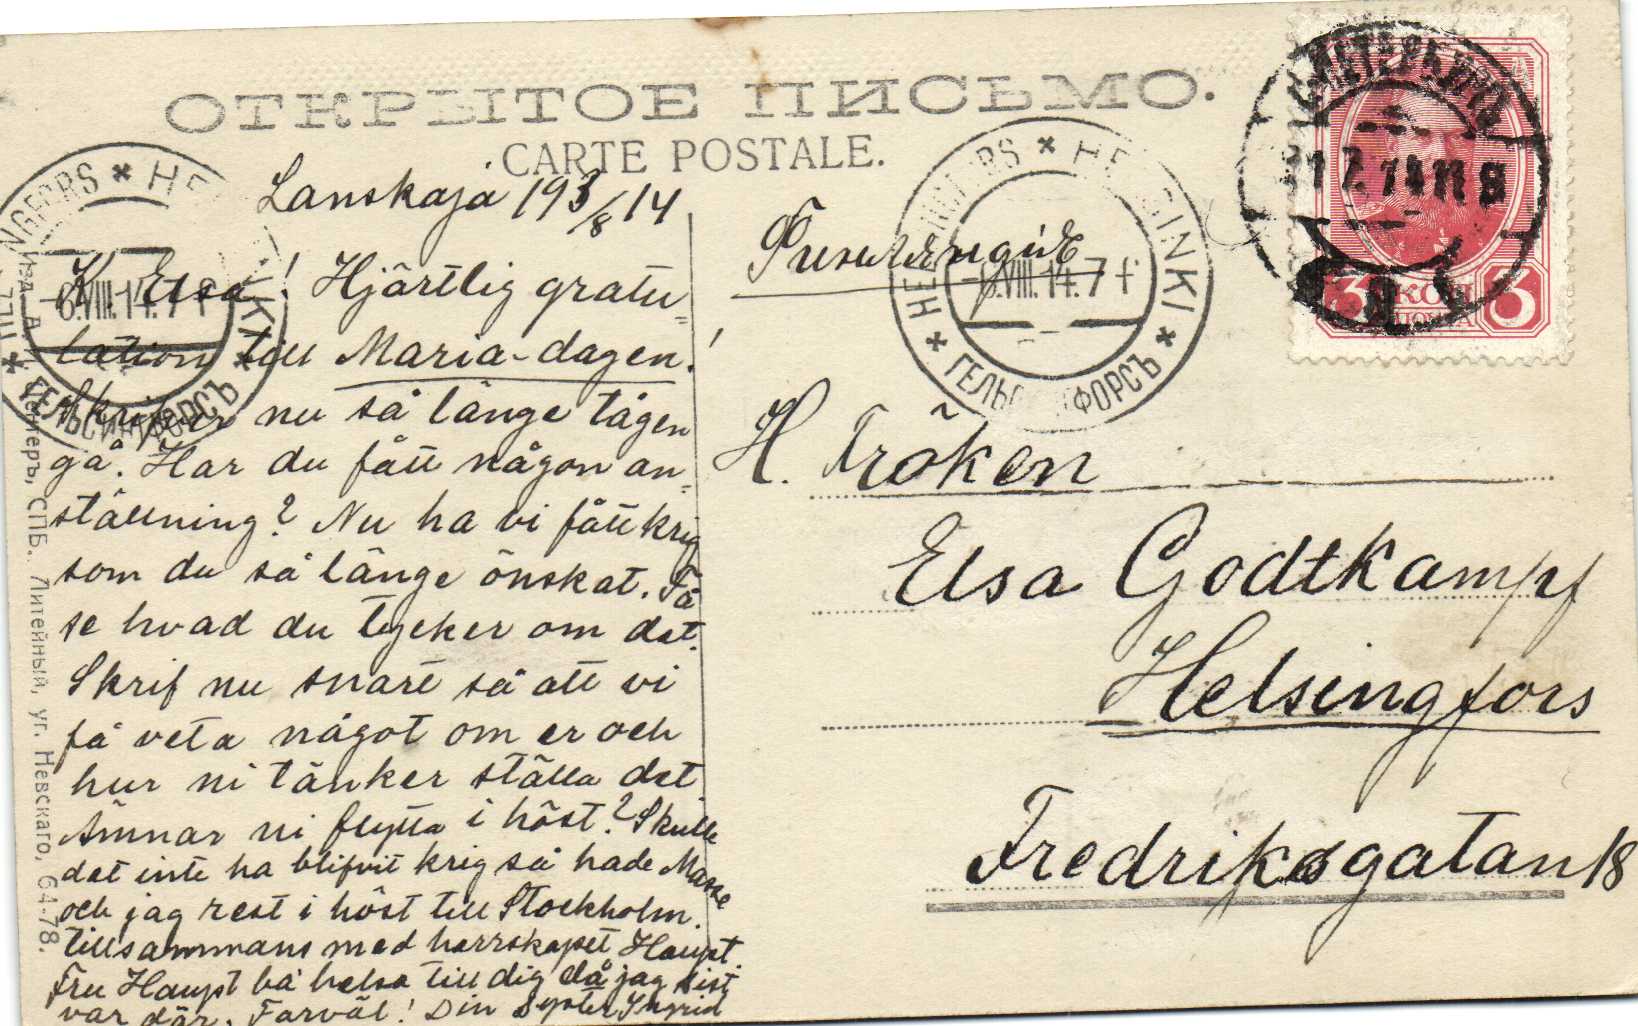 ОТКРЫТОЕ ПИСЬМО.
CARTE POSTALE.
Lanskaja 193/8 14
K. Elsa! Hjärtlig gratu=
lation till Maria-dagen!
Skrifver nu så länge tågen
gå. Har du fått någon an=
ställning? Nu ha vi fått krig
som du så länge önskat. Få
se hvad du tycker om det.
Skrif nu snart så att vi
få veta något om er och
hur ni tänker ställa det
Ämnar ni flytta i höst? Skulle
det inte ha blifvit krig så hade Masse
och jag rest i höst till Stockholm.
tillsammans med herrskapet Haupt.
Fru Haupt bå helsa till dig då jag sist
var där. Farväl! Din Syster Ingrid
Финляндія
H. Fröken
Elsa Godtkampf
Helsingfors
Fredriksgatan 18
HELSINGFORS * HELSINKI * ГЕЛЬСИНГФОРСЪ *
-6.VIII.14. 7
HELSINGFORS * HELSINKI * ГЕЛЬСИНГФОРСЪ *
-6.VIII.14. 7
С.ПЕТЕРБУРГЪ
7.14 11
3 КОП 3
ПОЧТА
Изд. А. И. Центеръ, СПБ. Литейный, уг. Невскаго, 64-78.